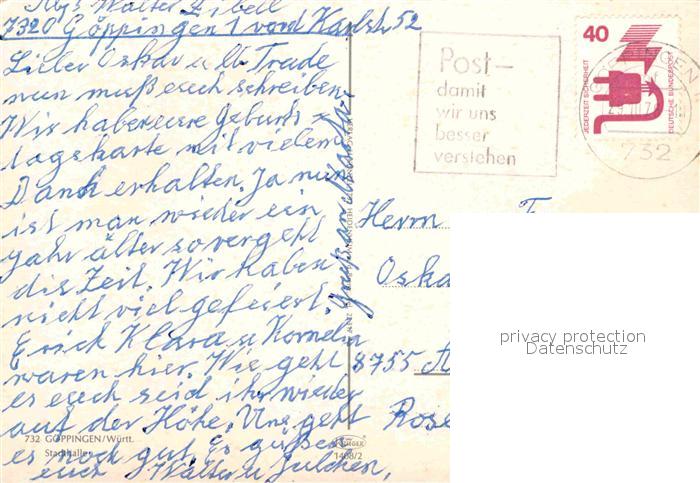 Abs. Walter Zibell
7320 Göppingen 1 vord Karlstr 52
Lieber Oskar u lb. Trade
nun muß euch schreiben
Wir haben eure Geburds
tagskarte mit vielem
Dank erhalten. Ja nun
ist man wieder ein
Jahr älter so vergeht
die Zeit. Wir haben
nicht viel gefeiert.
Erich Klara u Kornelia
waren hier. Wie geht
es euch seid ihr wieder
auf der Höhe. Uns geht
es noch gut. Es grüßen
euch Walter u Julchen,
Gruß an
732 GÖPPINGEN/Württ.
Stadthalle
KRÜGER
1468/2
Post –
damit
wir uns
besser
verstehen
40
JEDERZEIT SICHERHEIT
DEUTSCHE BUNDESPOST
732
Herrn
Oska
8755
Rose
privacy protection
Datenschutz